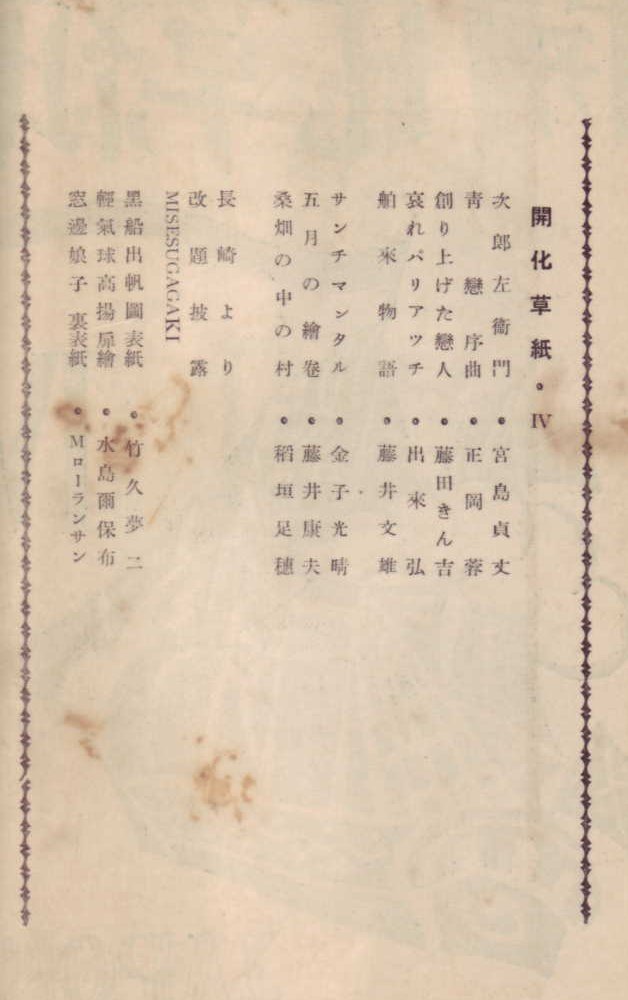 開化草紙・Ⅳ
次郎左衞門・宮島貞丈
靑戀序曲・正岡蓉
創り上げた戀人・藤田きん吉
哀れパリアツチ・出來弘
舶來物語・藤井文雄
サンチマンタル・金子光晴
五月の繪卷・藤井康夫
桑畑の中の村・稻垣足穗
長崎より
改題披露
MISESUGAGAKI
黑船出帆圖表紙・竹久夢二
輕氣球高揚扉繪・水島爾保布
窓邊娘子裏表紙・Mローランサン